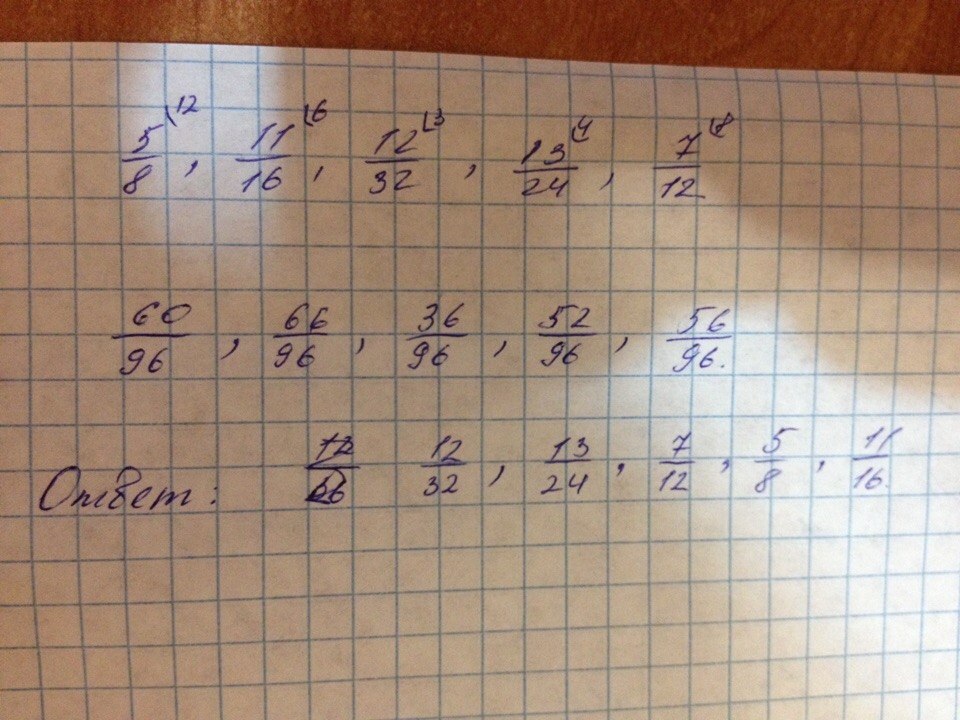 5/8 \12, 11/16 \6, 12/32 \3, 13/24 \4, 7/12 \8
60/96, 66/96, 36/96, 52/96, 56/96.
Ответ: 12/32, 13/24, 7/12, 5/8, 11/16